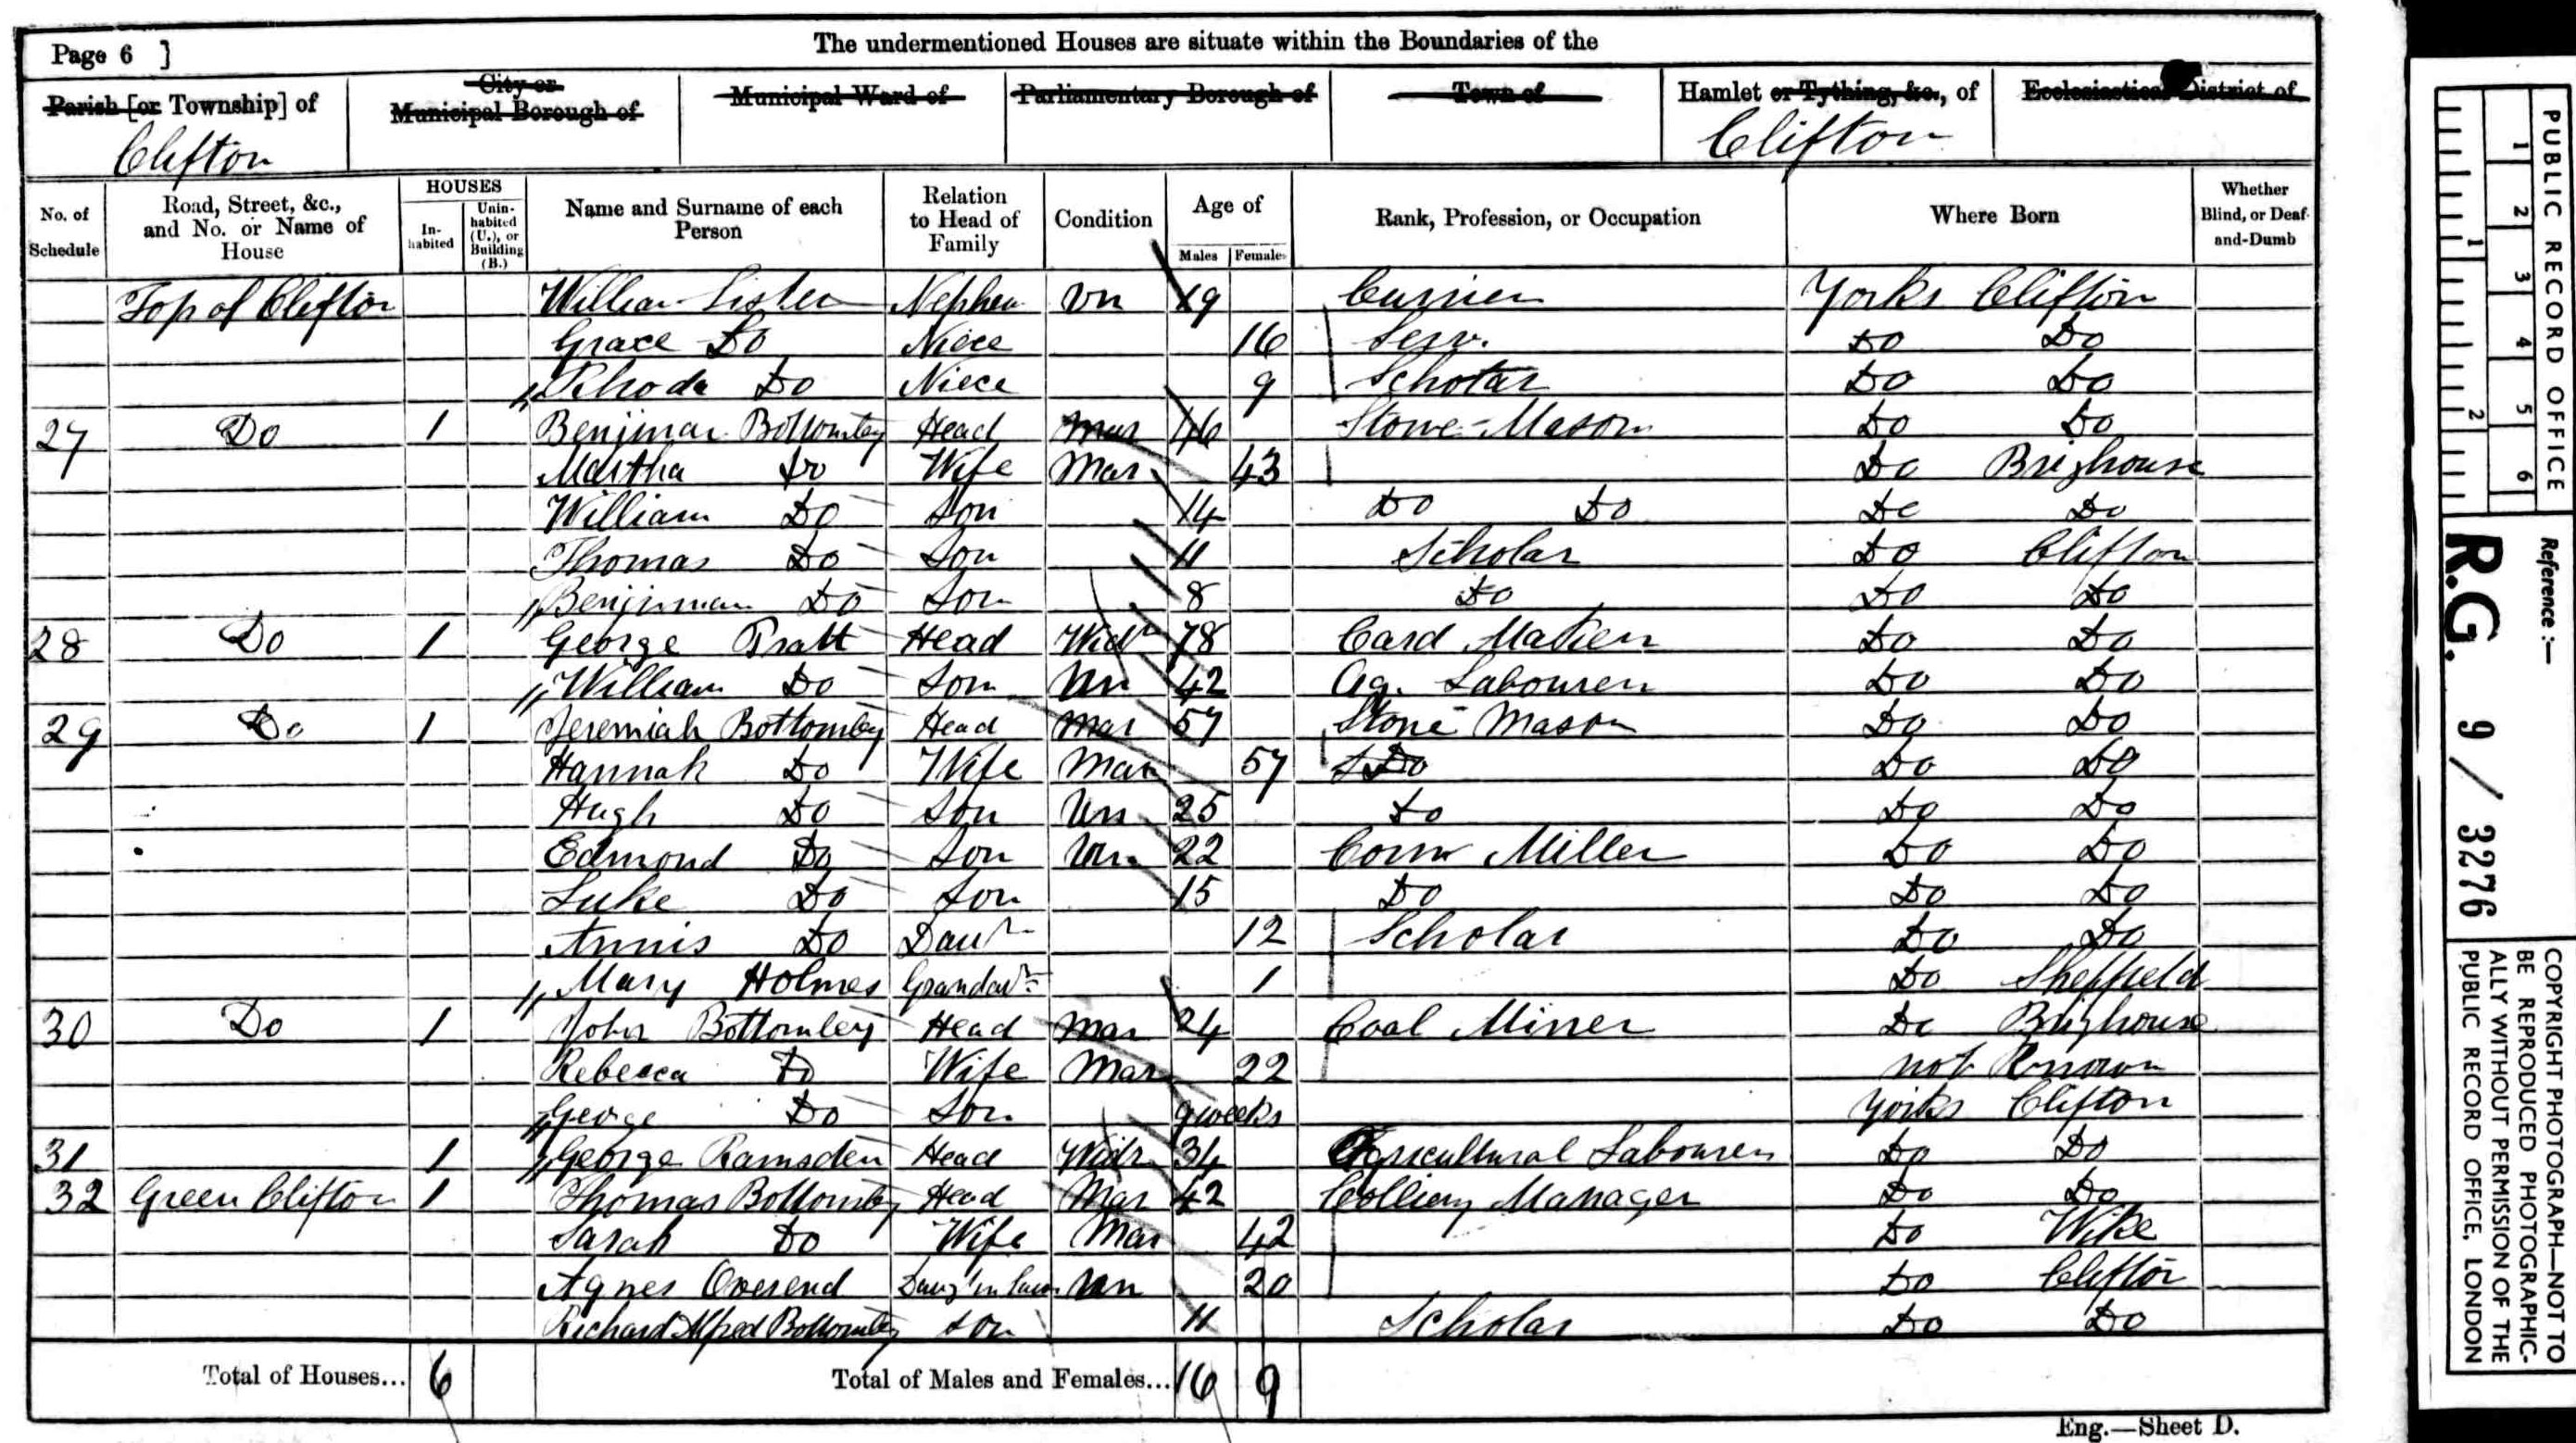 Page 6 ]
The undermentioned Houses are situate within the Boundaries of the
Parish [or Township] of
City or Municipal Borough of
Municipal Ward of
Parliamentary Borough of
Town of
Hamlet or Tything, &c., of
Ecclesiastical District of
Clifton
Clifton
No. of Schedule
Road, Street, &c., and No. or Name of House
HOUSES
In-habited
Unin-habited (U.), or Building (B.)
Name and Surname of each Person
Relation to Head of Family
Condition
Age of
Males
Females
Rank, Profession, or Occupation
Where Born
Whether Blind, or Deaf-and-Dumb
Top of Clifton William Lister Nephew Un 19 Currier Yorks Clifton
Grace Do Niece 16 Serv. Do Do
Rhoda Do Niece 9 Scholar Do Do
27 Do 1 Benjman Bottomley Head Mar 46 Stone Mason Do Do
Martha Do Wife Mar 43 Do Brighouse
William Do Son 14 Do Do Do Do
Thomas Do Son 11 Scholar Do Clifton
Benjiman Do Son 8 Do Do Do
28 Do 1 George Pratt Head Widr 78 Card Maker Do Do
William Do Son Un 42 Ag. Labourer Do Do
29 Do 1 Jeremiah Bottomley Head Mar 57 Stone Mason Do Do
Hannah Do Wife Mar 57 Do Do Do
Hugh Do Son Un 25 Do Do Do
Edmond Do Son Un 22 Corn Miller Do Do
Luke Do Son 15 Do Do Do
Annis Do Daur 12 Scholar Do Do
Mary Holmes Grandaur 1 Do Sheffield
30 Do 1 John Bottomley Head Mar 24 Coal Miner Do Brighouse
Rebecca Do Wife Mar 22 not Known
George Do Son 9 weeks Yorks Clifton
31 1 George Ramsden Head Widr 34 Agricultural Labourer Do Do
32 Green Clifton 1 Thomas Bottomley Head Mar 42 Colliery Manager Do Do
Sarah Do Wife Mar 42 Do Wike
Agnes Overend Daug in law Un 20 Do Clifton
Richard Alfred Bottomley Son 11 Scholar Do Do
Total of Houses... 6
Total of Males and Females... 16 9
Eng.—Sheet D.
PUBLIC RECORD OFFICE
1 2 3 4 5 6
1 2
Reference :—
R.G. 9 / 3276
COPYRIGHT PHOTOGRAPH—NOT TO
BE REPRODUCED PHOTOGRAPHIC-
ALLY WITHOUT PERMISSION OF THE
PUBLIC RECORD OFFICE, LONDON